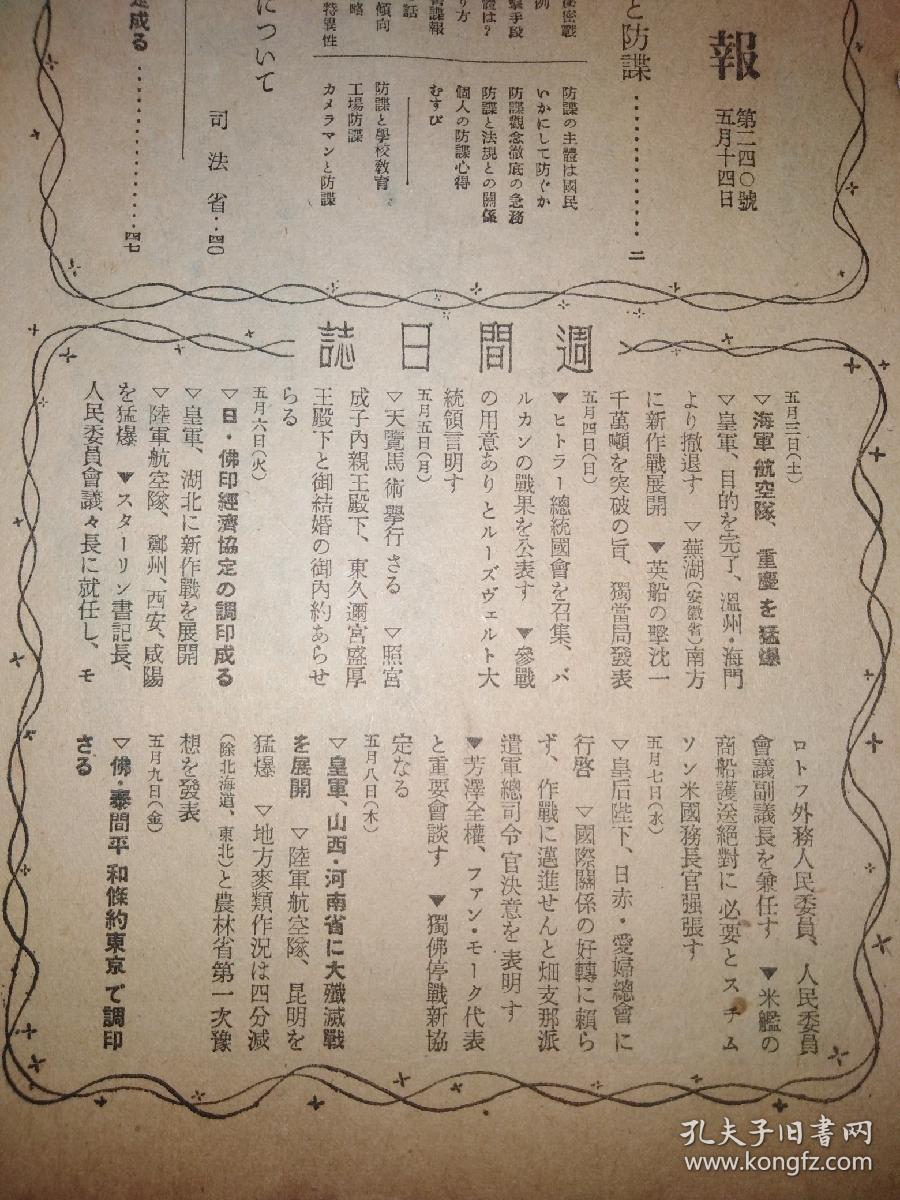 報
第二四〇號
五月十四日
と防諜……………二
祕密戰
擊手段
體は？
り方
諜報
話
傾向
略
特異性
防諜の主體は國民
いかにして防ぐか
防諜觀念徹底の急務
防諜と法規との關係
個人の防諜心得
むすび
防諜と學校敎育
工場防諜
カメラマンと防諜
について
司法省‥四〇
成る……………四七
週間日誌
五月三日(土)
▽海軍航空隊、重慶を猛爆
▽皇軍、目的を完了、溫州・海門
より撤退す　▽蕪湖(安徽省)南方
に新作戰展開　▼英船の擊沈一
千萬噸を突破の旨、獨當局發表
五月四日(日)
▼ヒトラー總統國會を召集、バ
ルカンの戰果を公表す　▼參戰
の用意ありとルーズヴェルト大
統領言明す
五月五日(月)
▽天覽馬術擧行さる　▽照宮
成子內親王殿下、東久邇宮盛厚
王殿下と御結婚の御內約あらせ
らる
五月六日(火)
▽日・佛印經濟協定の調印成る
▽皇軍、湖北に新作戰を展開
▽陸軍航空隊、鄭州、西安、咸陽
を猛爆　▼スターリン書記長、
人民委員會議々長に就任し、モ
ロトフ外務人民委員、人民委員
會議副議長を兼任す　▼米艦の
商船護送絕對に必要とスチム
ソン米國務長官强張す
五月七日(水)
▽皇后陛下、日赤・愛婦總會に
行啓　▽國際關係の好轉に賴ら
ず、作戰に邁進せんと畑支那派
遣軍總司令官決意を表明す
▼芳澤全權、ファン・モーク代表
と重要會談す　▼獨佛停戰新協
定なる
五月八日(木)
▽皇軍、山西・河南省に大殲滅戰
を展開　▽陸軍航空隊、昆明を
猛爆　▽地方麥類作況は四分減
(除北海道、東北)と農林省第一次豫
想を發表
五月九日(金)
▽佛・泰間平和條約東京で調印
さる
孔夫子旧书网
www.kongfz.com